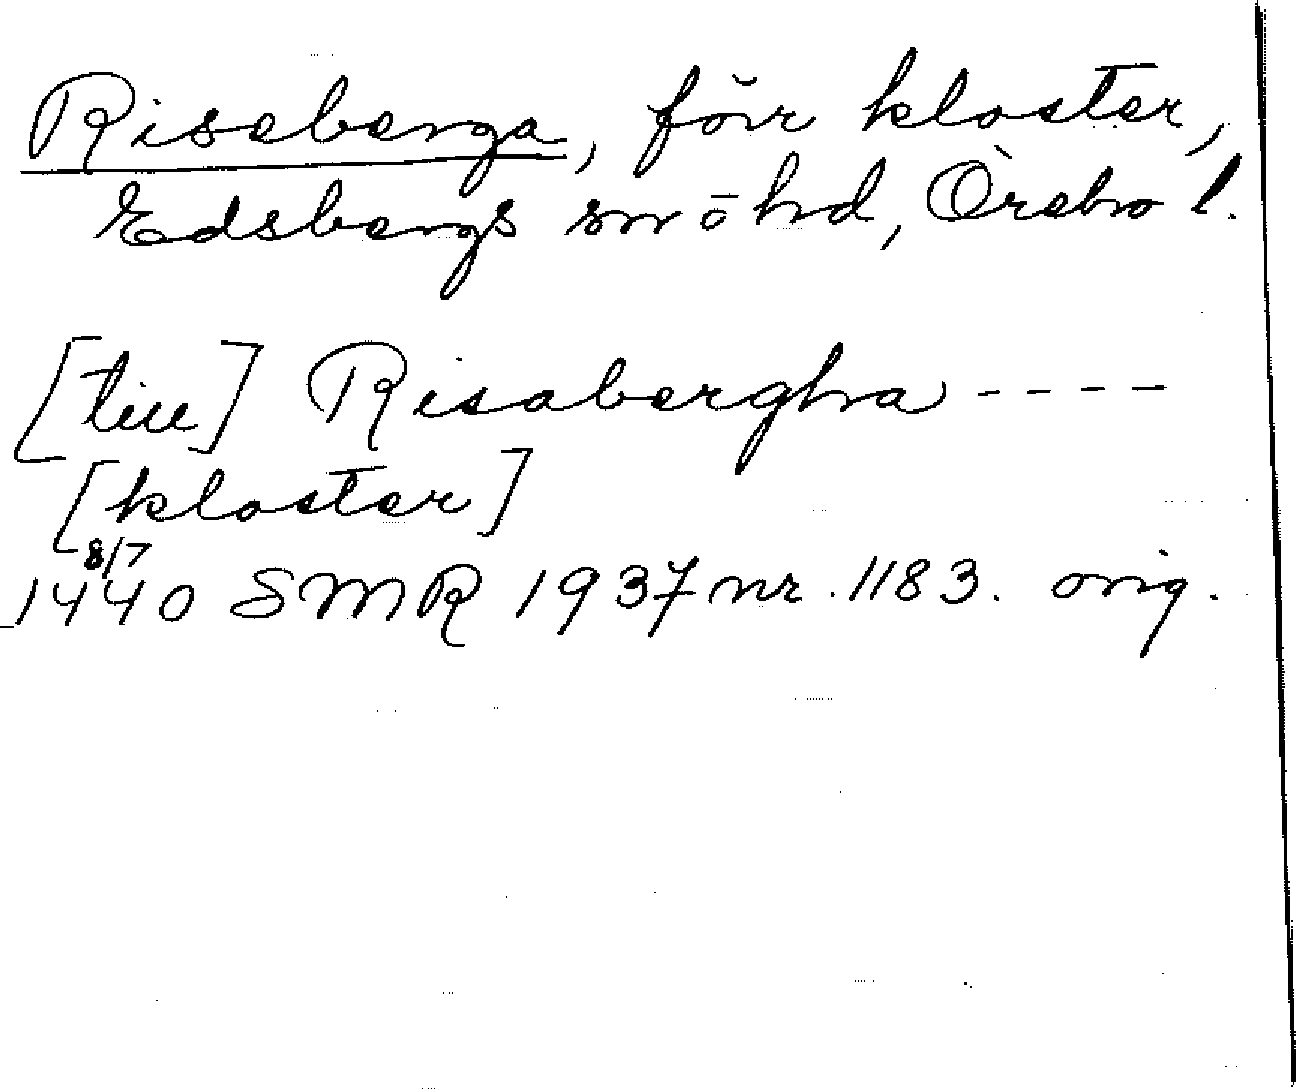 Riseberga, förr kloster,
Edsbergs sn o hd, Örebro l.
[till] Risabergha ----
[kloster]
8/7
1440 SMR 1937 nr. 1183. orig.